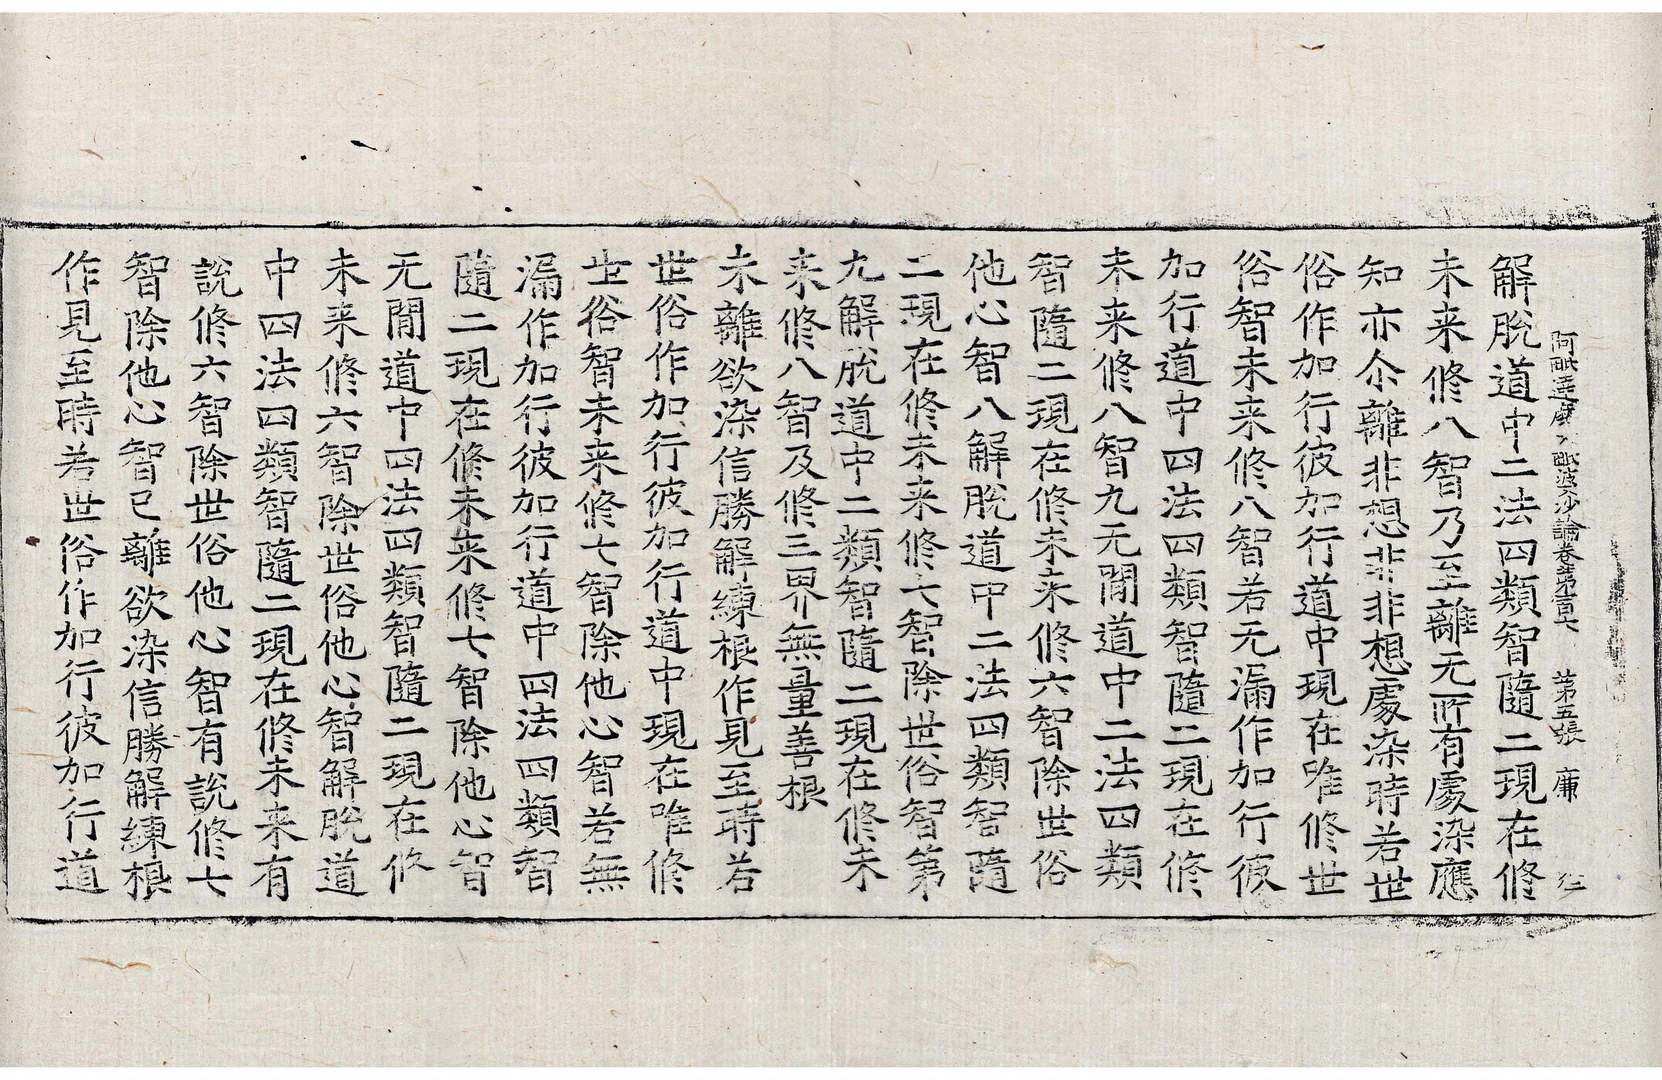 阿毗達磨大毗婆沙論卷第一百七 第五張 廉
解脫道中二法四類智隨二現在修
未来修八智乃至離无所有處染應
知亦尒離非想非非想處染時若世
俗作加行彼加行道中現在唯修世
俗智未来修八智若无漏作加行彼
加行道中四法四類智隨二現在修
未来修八智九无間道中二法四類
智隨二現在修未来修六智除世俗
他心智八解脫道中二法四類智隨
二現在修未来修七智除世俗智第
九解脫道中二類智隨二現在修未
来修八智及修三界無量善根
未離欲染信勝解練根作見至時若
世俗作加行彼加行道中現在唯修
世俗智未来修七智除他心智若無
漏作加行彼加行道中四法四類智
隨二現在修未来修七智除他心智
无間道中四法四類智隨二現在修
未来修六智除世俗他心智解脫道
中四法四類智隨二現在修未来有
說修六智除世俗他心智有說修七
智除他心智已離欲染信勝解練根
作見至時若世俗作加行彼加行道